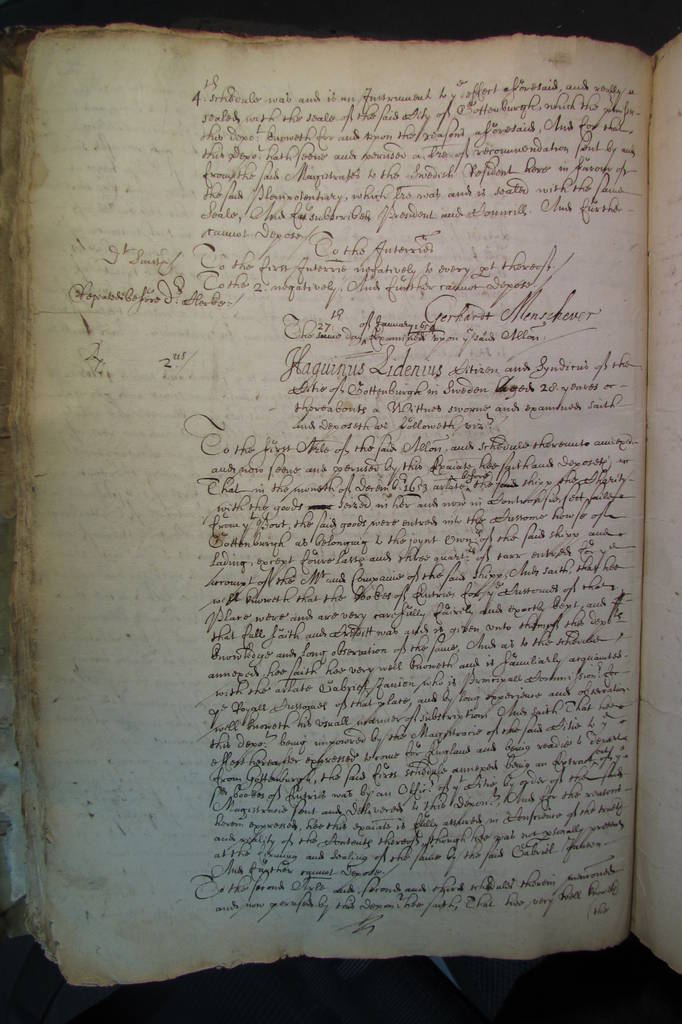 4th. schedule was and is an Instrument to ye effect aforesaid, and really
sealed with the seale of the said City of Gottenburgh, which the
this depot. knoweth for and upon the reasons aforesaid, And for that
this depot. hath seene and perused a lre of recommendation sent by
from the said Magistrates to the Swedish Resident here in favour of
the said Plenipotentiary, which lre was and is sealed with the same
seale, And subscribed President and Councell. And further
cannot depose
To the Interries
To the first Interrie negatively to every pt thereof
To the 2d negatively. And further cannot depose
Dr. Smith
Repeated before Dr. Clerke
Gerhardt Menschever
27th of January 1654
The same day examined upon ye said Allon.
2us
Haquinus Lidenius Citizen and Syndicus of the
Citie of Gottenburgh in Sweden Aged 28 yeares or
thereabouts a Wittnes sworne and examined saith
and deposeth as followeth vizt.
To the first Arle of the said Allon, and schedule thereunto annexed
and now seene and perused by this Examte, hee saith and deposeth
That in the moneth of Decembr. 1653 arlate the said shipp the Charity
with the goods seized in her and now in Controversie, set saile
from ye Port, the said goods were entred into the Custome house of
Gottenburgh as belonging to the joynt Ownrs of the said shipp and
lading, except foure lasts and three quartrs of tarr entred for ye
accompt of the Mr and Companie of the said shipp, And saith, that hee
well knoweth that the Bookes of Entries for ye Customes of that
Place were and are very carefully fairely and exactly kept, and
that full faith and Creditt was and is given unto them of the depts
knowledge and long observation of the same, And as to the schedule
annexed, hee saith hee very well knoweth and is familiarly acquainted
with the arlate Gabriel Janson, who is Principall Commissionr. for
ye Royall Customes of that place, and by long experience and observation
well knoweth his usuall manner of subscription And saith That hee
this depot. being impowred by the Magistracie of the said Citie to ye
effect hereafter expressed to come for England and being readie to depart
from Gottenburgh, the said first schedule annexed being an Extract of ye
Bookes of Entries was by an Officr. of ye Citie by order of the said
Magistracie sent and delivered to this deponr. And for the reasons
herein expressed, hee this examte is fully assured in Conscience of the truth
and reality of the Contents thereof, though hee was not personally present
at the signing and sealing of the same by the said Gabriel Janson
And further cannot depose.
To the second Arle and second and third schedules therein mentioned
and now perused by this Deponr. hee saith, That hee very well knoweth
the